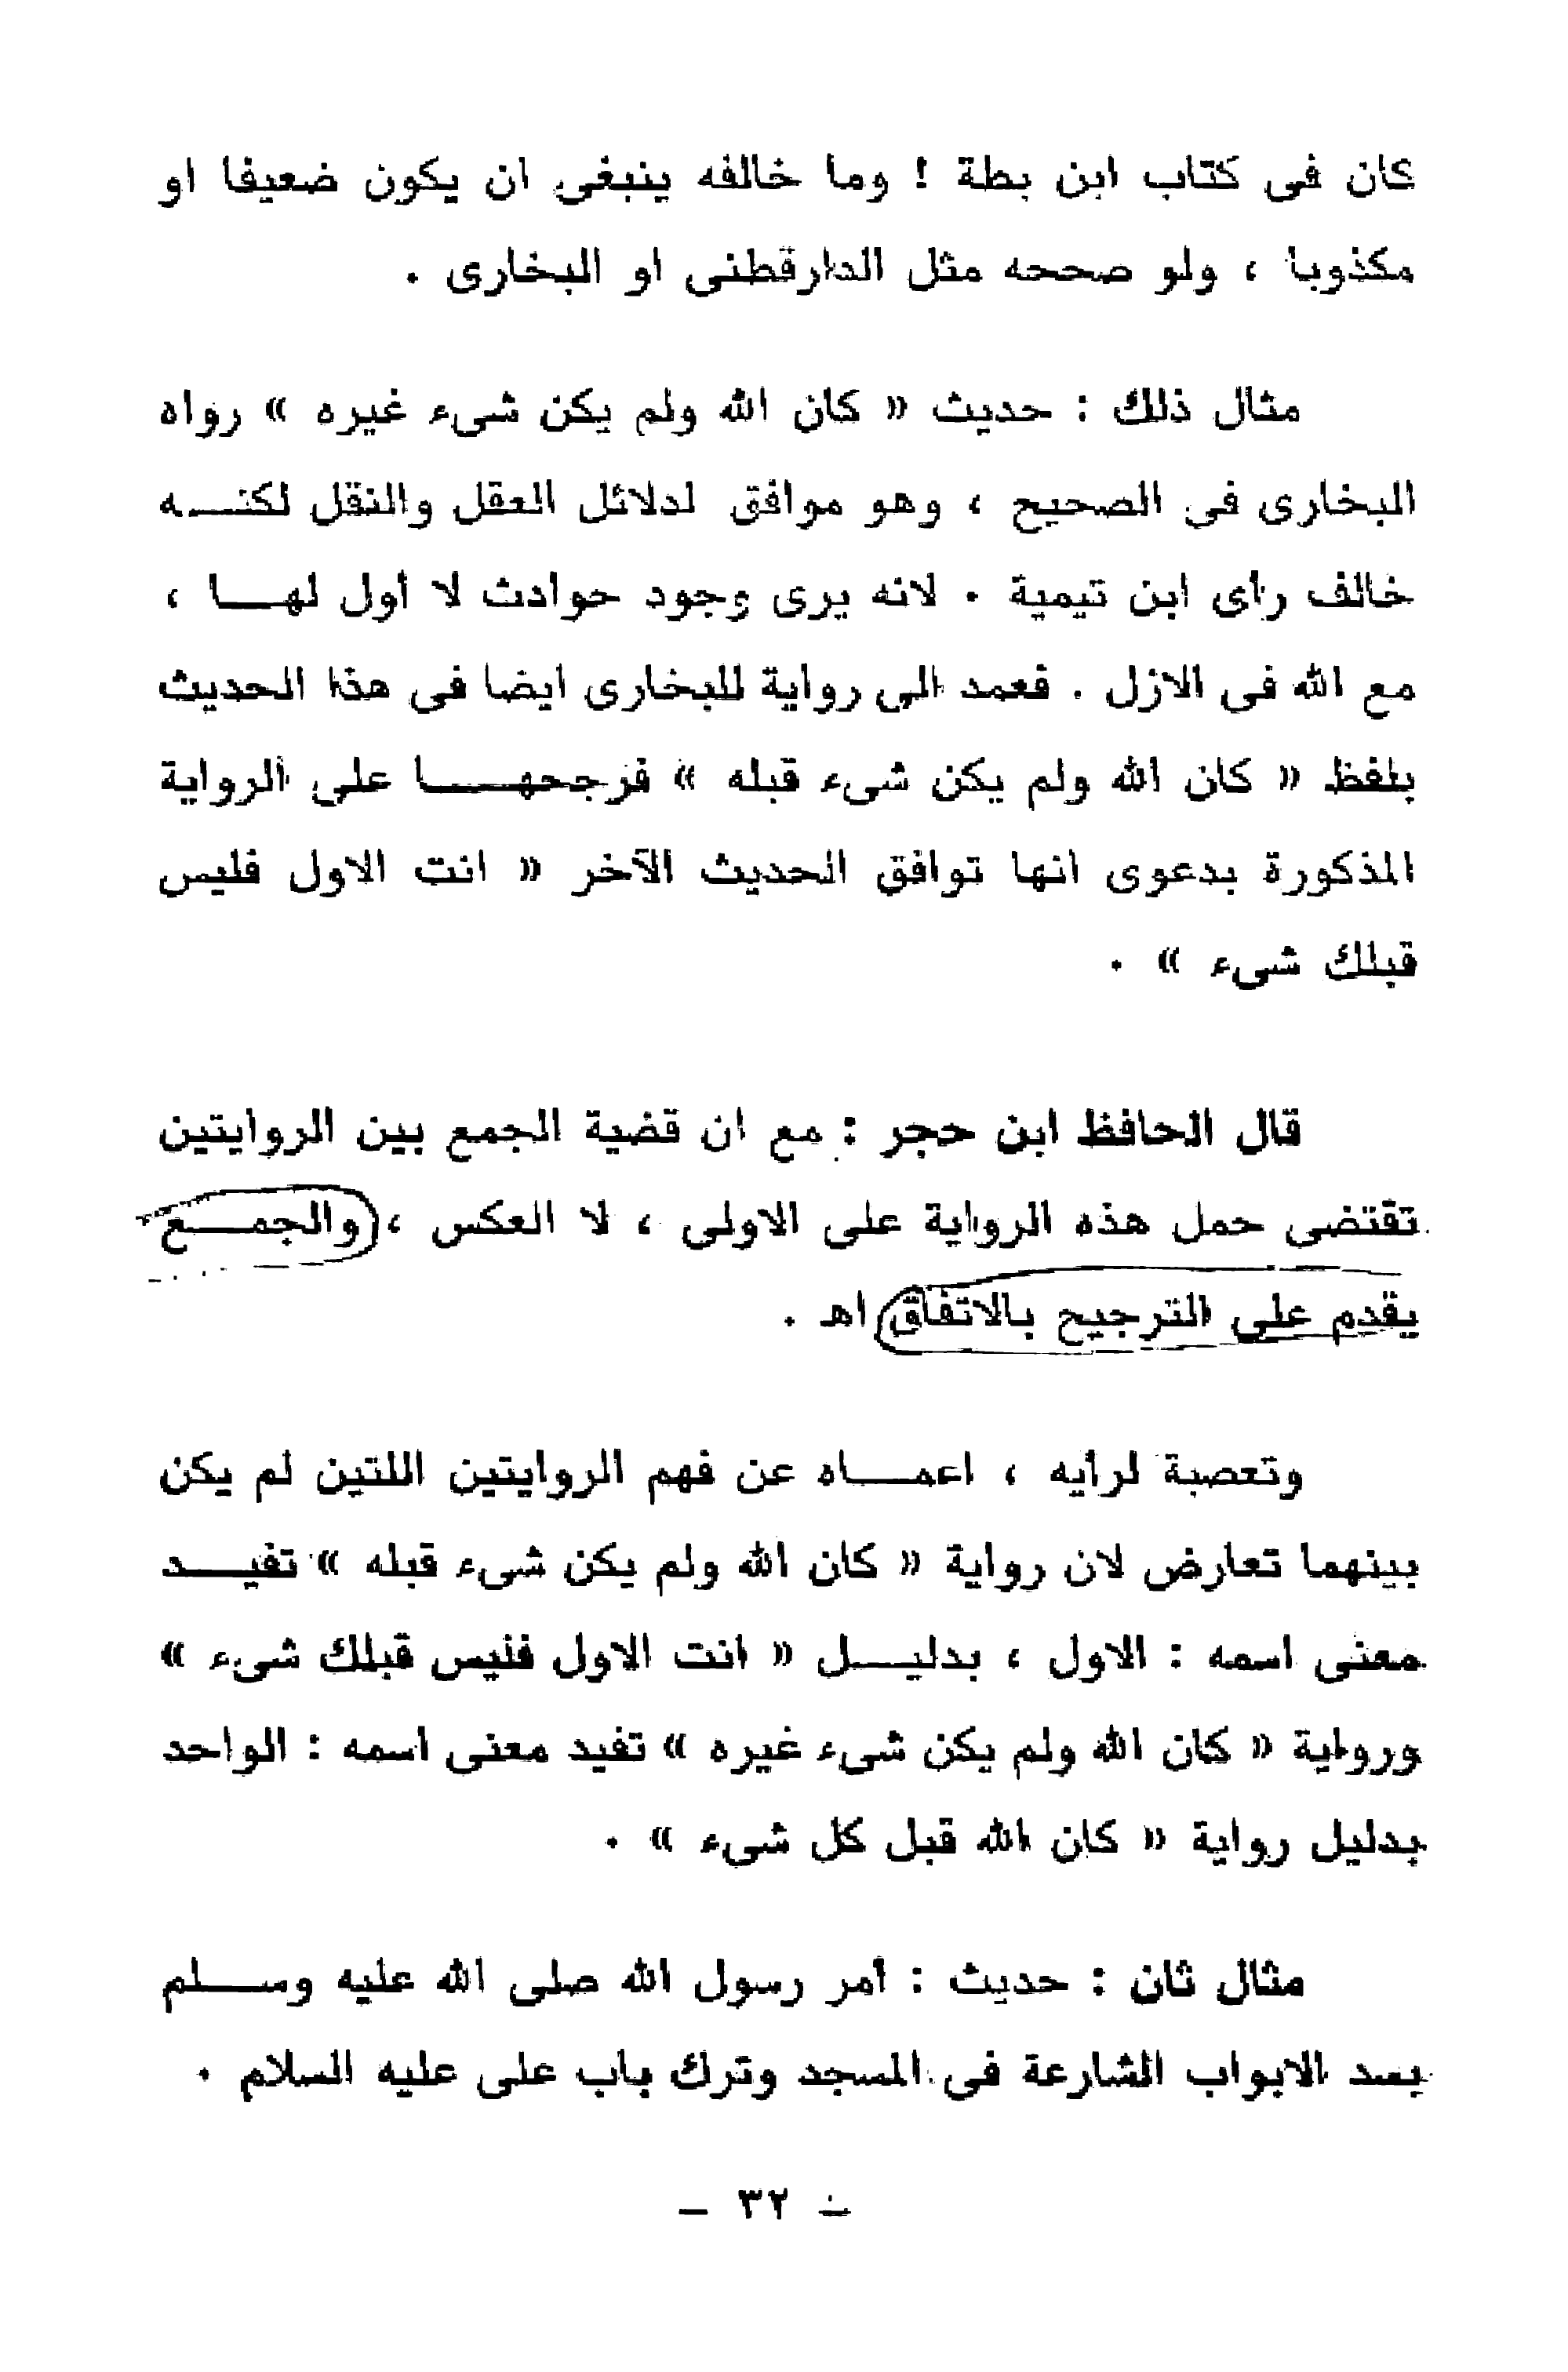 كان فى كتاب ابن بطة ! وما خالفه ينبغى ان يكون ضعيفا او
مكذوبا ، ولو صححه مثل الدارقطنى او البخارى .
مثال ذلك : حديث « كان الله ولم يكن شىء غيره » رواه
البخارى فى الصحيح ، وهو موافق لدلائل العقل والنقل لكنـــه
خالف رأى ابن تيمية . لانه يرى وجود حوادث لا أول لهـــا ،
مع الله فى الازل . فعمد الى رواية للبخارى ايضا فى هذا الحديث
بلفظ « كان الله ولم يكن شىء قبله » فرجحهـــا على الرواية
المذكورة بدعوى انها توافق الحديث الآخر « انت الاول فليس
قبلك شىء » .
قال الحافظ ابن حجر : مع ان قضية الجمع بين الروايتين
تقتضى حمل هذه الرواية على الاولى ، لا العكس ، والجمـــع
يقدم على الترجيح بالاتفاق اهـ .
وتعصبة لرأيه ، اعمـــاه عن فهم الروايتين اللتين لم يكن
بينهما تعارض لان رواية « كان الله ولم يكن شىء قبله » تفيـــد
معنى اسمه : الاول ، بدليـــل « انت الاول فليس قبلك شىء »
ورواية « كان الله ولم يكن شىء غيره » تفيد معنى اسمه : الواحد
بدليل رواية « كان الله قبل كل شىء » .
مثال ثان : حديث : أمر رسول الله صلى الله عليه وســـلم
بسد الابواب الشارعة فى المسجد وترك باب على عليه السلام .
– ٣٢ –